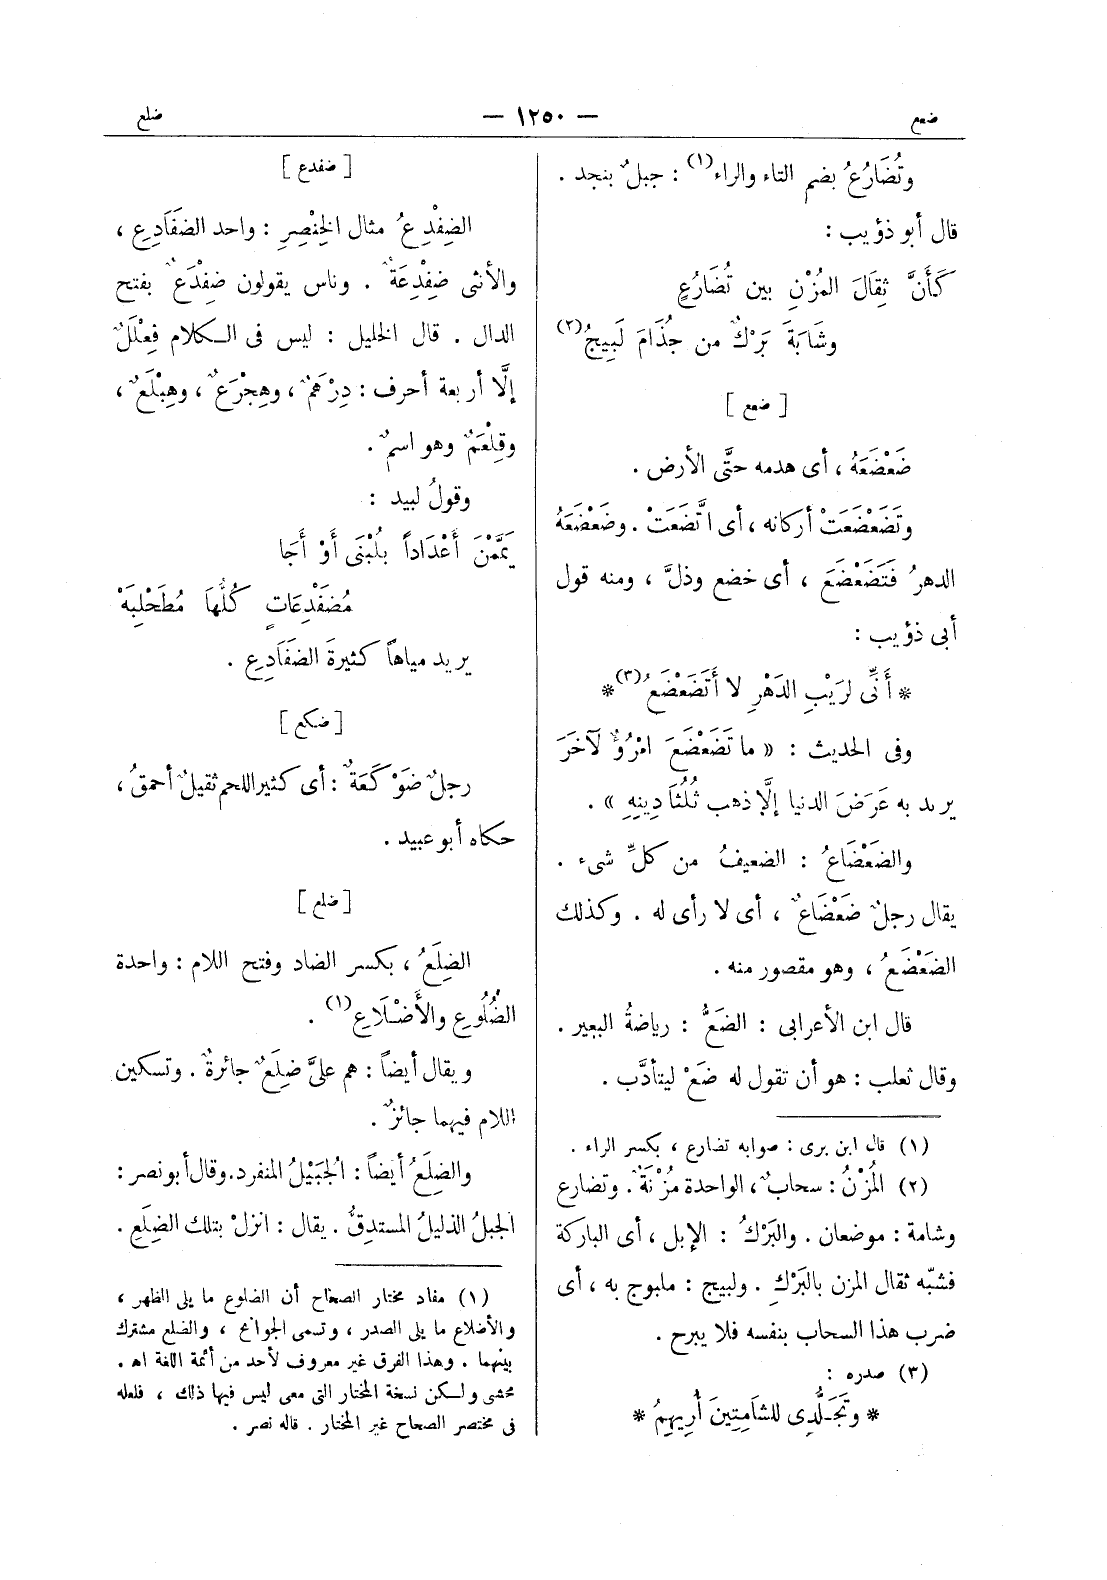 ضعع — ١٢٥٠ — ضلع
وتُضَارُعُ بضم التاء والراء(١) : جبلٌ بنجد .
قال أبو ذؤيب :
كَأَنَّ ثِقَالَ المُزْنِ بين تُضَارُعٍ
وشَابَةَ بَرْكٌ من جُذَامَ لَبِيجُ(٢)
[ ضعع ]
ضَعْضَعَهُ ، أى هدمه حتَّى الأرض .
وتَضَعْضَعَتْ أركانه ، أى اتَّضَعَتْ . وضَعْضَعَهُ
الدهرُ فَتَضَعْضَعَ ، أى خضع وذلَّ ، ومنه قول
أبى ذؤيب :
* أَنِّى لرَيْبِ الدَهْرِ لا أَتَضَعْضَعُ(٣) *
وفى الحديث : « ما تَضَعْضَعَ امْرُؤٌ لآخَرَ
يريد به عَرَضَ الدنيا إلَّا ذهب ثُلُثَا دِينِهِ » .
والضَعْضَاعُ : الضعيفُ من كلِّ شىء .
يقال رجلٌ ضَعْضَاعٌ ، أى لا رأى له . وكذلك
الضَعْضَعُ ، وهو مقصور منه .
قال ابن الأعرابى : الضَعُّ : رياضةُ البعير .
وقال ثعلب : هو أن تقول له ضَعْ ليتأدَّب .
(١) قال ابن برى : صوابه تضارع ، بكسر الراء .
(٢) المُزْنُ : سحابٌ ، الواحدة مُزْنَةٌ . وتضارع
وشامة : موضعان . والبَرْكُ : الإبل ، أى الباركة
فشبّه ثقال المزن بالبَرْكِ . ولبيج : ملبوج به ، أى
ضرب هذا السحاب بنفسه فلا يبرح .
(٣) صدره :
* وتَجَلُّدِى للشامِتِينَ أُرِيهِمُ *
[ ضفدع ]
الضِفْدِعُ مثال الخِنْصِرِ : واحد الضَفَادِعِ ،
والأنثى ضِفْدِعَةٌ . وناس يقولون ضِفْدَعٌ بفتح
الدال . قال الخليل : ليس فى الكلام فِعْلَلٌ
إلَّا أربعة أحرف : دِرْهَمٌ ، وهِجْرَعٌ ، وهِبْلَعٌ ،
وقِلْعَمٌ وهو اسمٌ .
وقولُ لبيد :
يَمَّمْنَ أَعْدَاداً بِلُبْنَى أوْ أَجَا
مُضَفْدِعَاتٍ كُلُّهَا مُطَحْلِبَهْ
يريد مياهاً كثيرةَ الضَفَادِعِ .
[ ضكع ]
رجلٌ ضَوْكَعَةٌ : أى كثير اللحم ثقيلٌ أحمقُ ،
حكاه أبو عبيد .
[ ضلع ]
الضِلَعُ ، بكسر الضاد وفتح اللام : واحدة
الضُلُوعِ والأَضْلَاعِ(١) .
ويقال أيضاً : هم علىَّ ضِلَعٌ جائرةٌ . وتسكين
اللام فيهما جائزٌ .
والضِلَعُ أيضاً : الجُبَيْلُ المنفرد . وقال أبو نصر :
الجبلُ الذليلُ المستدِقُّ . يقال : انزلْ بتلك الضِلَعِ .
(١) مفاد مختار الصحاح أن الضلوع ما يلى الظهر ،
والأضلاع ما يلى الصدر ، وتسمى الجوانح ، والضلع مشترك
بينهما . وهذا الفرق غير معروف لأحد من أئمة اللغة اه .
محشى ولكن نسخة المختار التى معى ليس فيها ذلك ، فلعله
فى مختصر الصحاح غير المختار . قاله نصر .